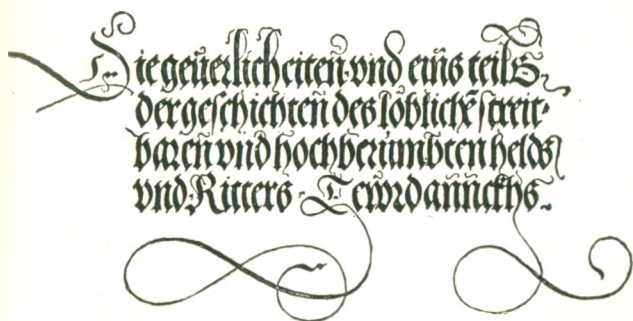 Die geuerlicheiteñ vnd eiñs teils
der geschichteñ des loblichẽ streit-
bareñ vnd hochberümbten helds
vnd Ritters Tewrdanñckhs.